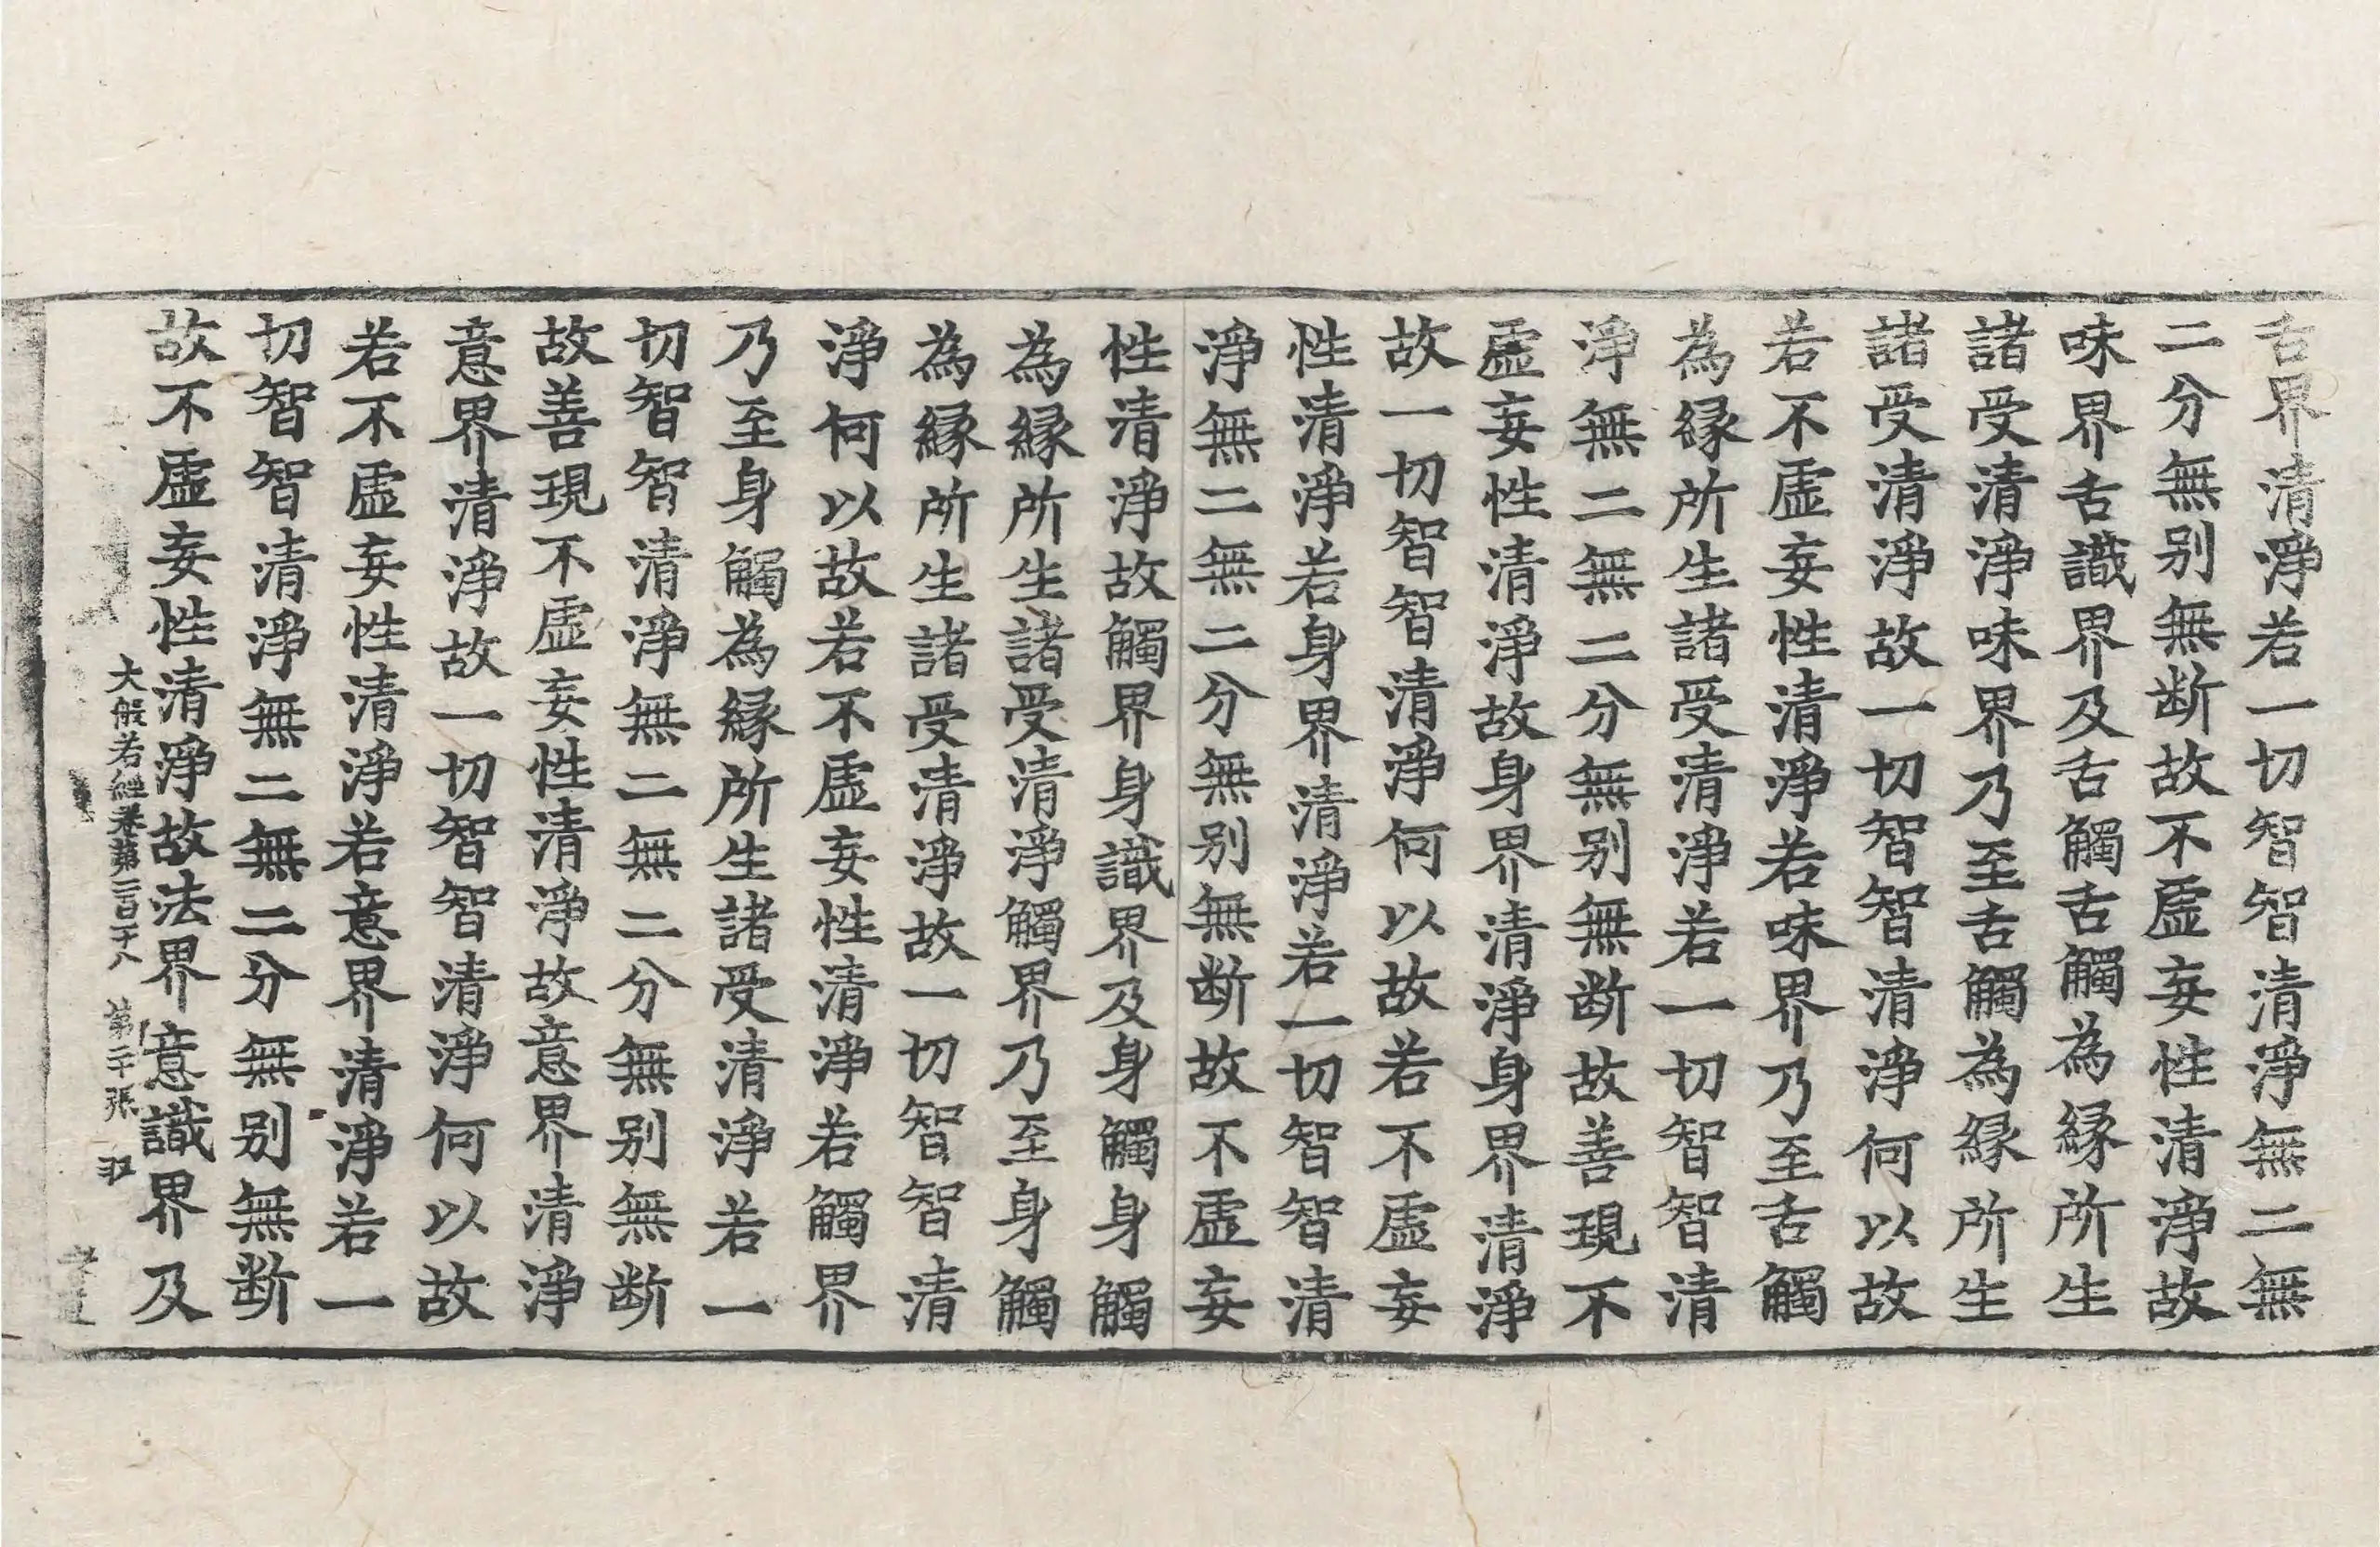 舌界清淨若一切智智清淨無二無
二分無别無断故不虛妄性清淨故
味界舌識界及舌觸舌觸為縁所生
諸受清淨味界乃至舌觸為縁所生
諸受清淨故一切智智清淨何以故
若不虛妄性清淨若味界乃至舌觸
為縁所生諸受清淨若一切智智清
淨無二無二分無别無断故善現不
虛妄性清淨故身界清淨身界清淨
故一切智智清淨何以故若不虛妄
性清淨若身界清淨若一切智智清
淨無二無二分無别無断故不虛妄
性清淨故觸界身識界及身觸身觸
為縁所生諸受清淨觸界乃至身觸
為縁所生諸受清淨故一切智智清
淨何以故若不虛妄性清淨若觸界
乃至身觸為縁所生諸受清淨若一
切智智清淨無二無二分無别無断
故善現不虛妄性清淨故意界清淨
意界清淨故一切智智清淨何以故
若不虛妄性清淨若意界清淨若一
切智智清淨無二無二分無别無断
故不虛妄性清淨故法界意識界及
大般若經卷第二百五十八 第二十張